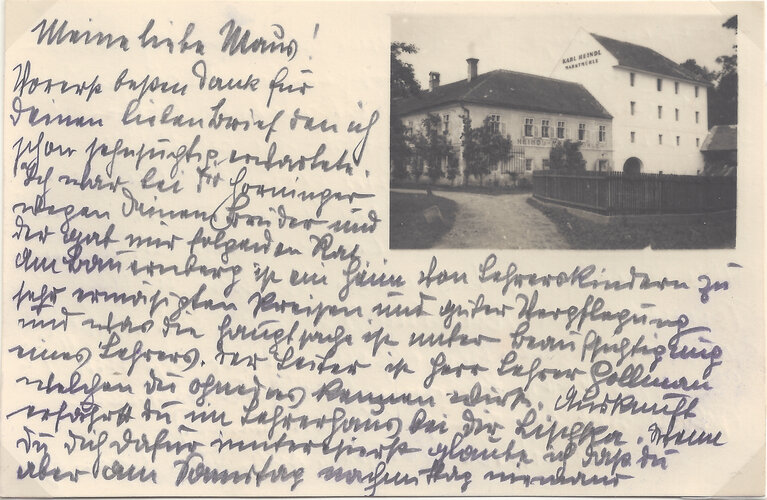 Meine liebe Maus!
Vorerst besten Dank für
deinen lieben Brief den ich
schon sehnsüchtig erwartete.
Ich war bei Dr Horninger
wegen deinem Bruder und
der gab mir folgenden Rat
Am Bauernberg ist ein Heim von Lehrerskindern zu
sehr ermäsigten Preisen und guter Verpflegung
und was die Hauptsache ist unter Beaufsichtigung
eines Lehrers. Der Leiter ist Herr Lehrer Gollman
welchen du ohnedas kennen wirst. Auskunft
erfährst du im Lehrerhaus bei Dir. Lischka. Wenn
du dich dafür interesierst glaube ich daß du
aber am Samstag nachmittag niemand
KARL HEINDL
MARKTMÜHLE
HEINDL